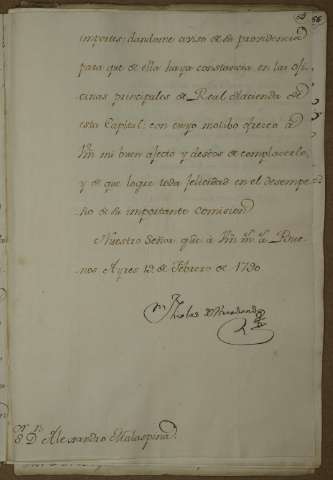 importes; dandome aviso de su providencia
para que de ella haya constancia en las ofi-
cinas principales de Real Hacienda de
esta Capital: con cuyo motibo ofrezco à
Vm mi buen afecto y deseos de complacerle,
y de que logre toda felicidad en el desempe-
ño de su importante Comision
Nuestro Señor gũe à Vm m.s a.s Bue-
nos Ayres 12 de Febrero de 1790
Nicolas de Arredondo
S.or D.n Alexandro Malaspina